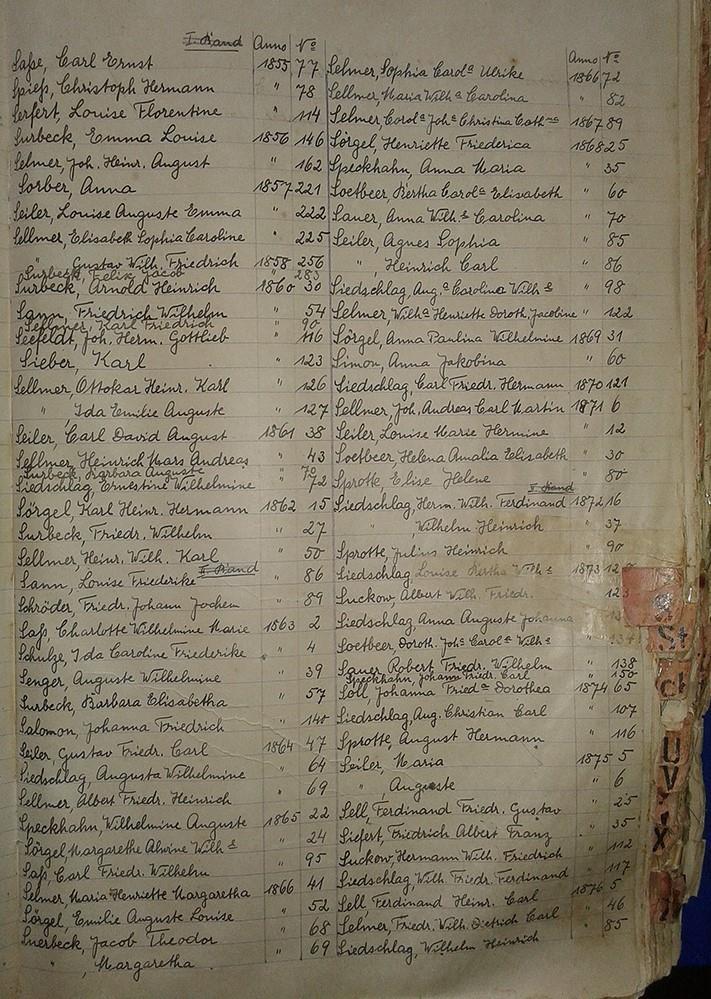 I. Band Anno No
Saße, Carl Ernst 1855 77
Spieß, Christoph Hermann " 78
Serfert, Louise Florentine " 114
Surbeck, Emma Louise 1856 146
Selmer, Joh. Heinr. August " 162
Sorber, Anna 1857 221
Seiler, Louise Auguste Emma " 222
Sellmer, Elisabeth Sophia Caroline " 225
" Gustav Wilh. Friedrich 1858 256
Surbeck, Felix Jacob " 283
Surbeck, Arnold Heinrich 1860 30
Sann, Friedrich Wilhelm " 54
Sellmer, Karl Friedrich " 90
Seefeldt, Joh. Herm. Gottlieb " 116
Sieber, Karl " 123
Sellmer, Ottokar Heinr. Karl " 126
" Ida Emilie Auguste " 127
Seiler, Carl David August 1861 38
Sellmer, Heinrich Mars Andreas " 43
Surbeck, Barbara Auguste " 70
Siedschlag, Ernestine Wilhelmine " 72
Sörgel, Karl Heinr. Hermann 1862 15
Surbeck, Friedr. Wilhelm " 27
Sellmer, Heinr. Wilh. Karl " 50
II. Band
Sann, Louise Friederike " 86
Schröder, Friedr. Johann Jochem " 89
Saß, Charlotte Wilhelmine Marie 1863 2
Schulze, Ida Caroline Friederike " 4
Senger, Auguste Wilhelmine " 39
Surbeck, Barbara Elisabetha " 57
Salomon, Johanna Friedrich " 140
Seiler, Gustav Friedr. Carl 1864 47
Siedschlag, Augusta Wilhelmine " 64
Sellmer, Albert Friedr. Heinrich " 69
Speckhahn, Wilhelmine Auguste 1865 22
Sörgel, Margarethe Alwine Wilhe " 24
Saß, Carl Friedr. Wilhelm " 95
Selmer, Maria Henriette Margaretha 1866 41
Sörgel, Emilie Auguste Louise " 52
Suerbeck, Jacob Theodor " 68
" , Margaretha " 69
Anno No
Selmer, Sophia Carola Ulrike 1866 72
Sellmer, Maria Wilha Carolina " 82
Selmer, Carola Joha Christina Cathna 1867 89
Sörgel, Henriette Friederica 1868 25
Speckhahn, Anna Maria " 35
Soetbeer, Bertha Carola Elisabeth " 60
Sauer, Anna Wilhe Carolina " 70
Seiler, Agnes Sophia " 85
" , Heinrich Carl " 86
Siedschlag, Auga Carolina Wilhe " 98
Selmer, Wilha Henriette Doroth. Jacobine " 122
Sörgel, Anna Paulina Wilhelmine 1869 31
Simon, Anna Jakobina " 60
Siedschlag, Carl Friedr. Hermann 1870 121
Sellmer, Joh. Andreas Carl Martin 1871 6
Seiler, Louise Marie Hermine " 12
Soetbeer, Helena Amalia Elisabeth " 30
Sprotte, Elise Helene " 80
Band
Siedschlag, Herm. Wilh. Ferdinand 1872 16
" , Wilhelm Heinrich " 37
Sprotte, Julius Heinrich " 90
Siedschlag Louise Bertha Wilhe 1873
Suckow, Albert Wilh. Friedr. "
Siedschlag Anna Auguste Johanna
Soetbeer, Doroth. Joha Carola Wilhe "
Sauer Robert Friedr. Wilhelm " 138
Speckhahn, Johann Friedr. Carl " 150
Söll, Johanna Frieda Dorothea 1874 65
Siedschlag, Aug. Christian Carl " 107
Sprotte, August Hermann " 116
Seiler, Maria 1875 5
" , Auguste " 6
Sell, Ferdinand Friedr. Gustav " 25
Siefert, Friedrich Albert Franz " 35
Suckow, Hermann Wilh. Friedrich " 112
Siedschlag, Wilh. Friedr. Ferdinand " 117
Sell, Ferdinand Heinr. Carl 1876 5
Selmer, Friedr. Wilh. Dietrich Carl " 46
Siedschlag, Wilhelm Heinrich " 85
St
UV
X